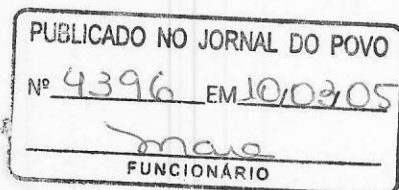 PUBLICADO NO JORNAL DO POVO
Nº 4396 EM 10/03/05
FUNCIONÁRIO